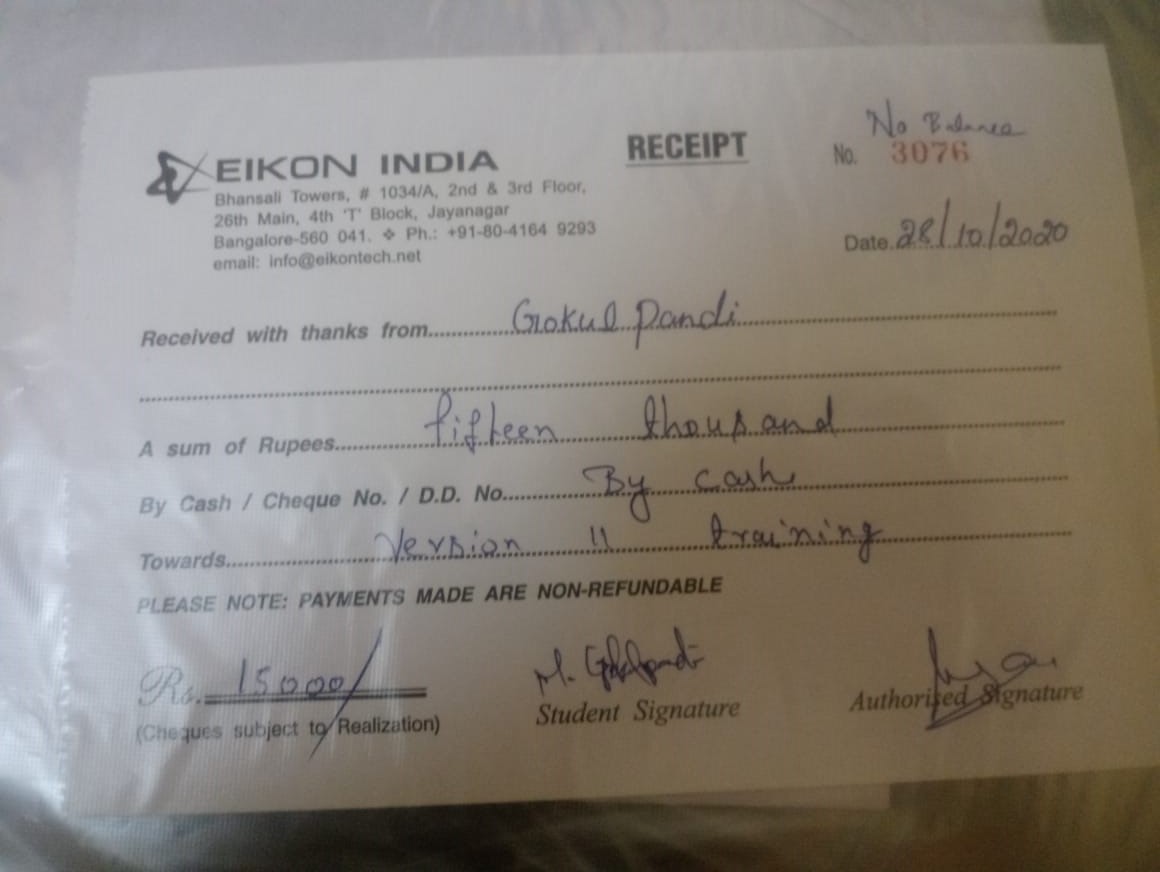 EIKON INDIA
Bhansali Towers, # 1034/A, 2nd & 3rd Floor,
26th Main, 4th 'T' Block, Jayanagar
Bangalore-560 041. ❖ Ph.: +91-80-4164 9293
email: info@eikontech.net
RECEIPT
No Balance
No. 3076
Date 28/10/2020
Received with thanks from Gokul Pandi
A sum of Rupees fifteen thousand
By Cash / Cheque No. / D.D. No. By cash
Towards Version 11 training
PLEASE NOTE: PAYMENTS MADE ARE NON-REFUNDABLE
Rs. 15000/
(Cheques subject to Realization)
M.
Student Signature
Authorised Signature